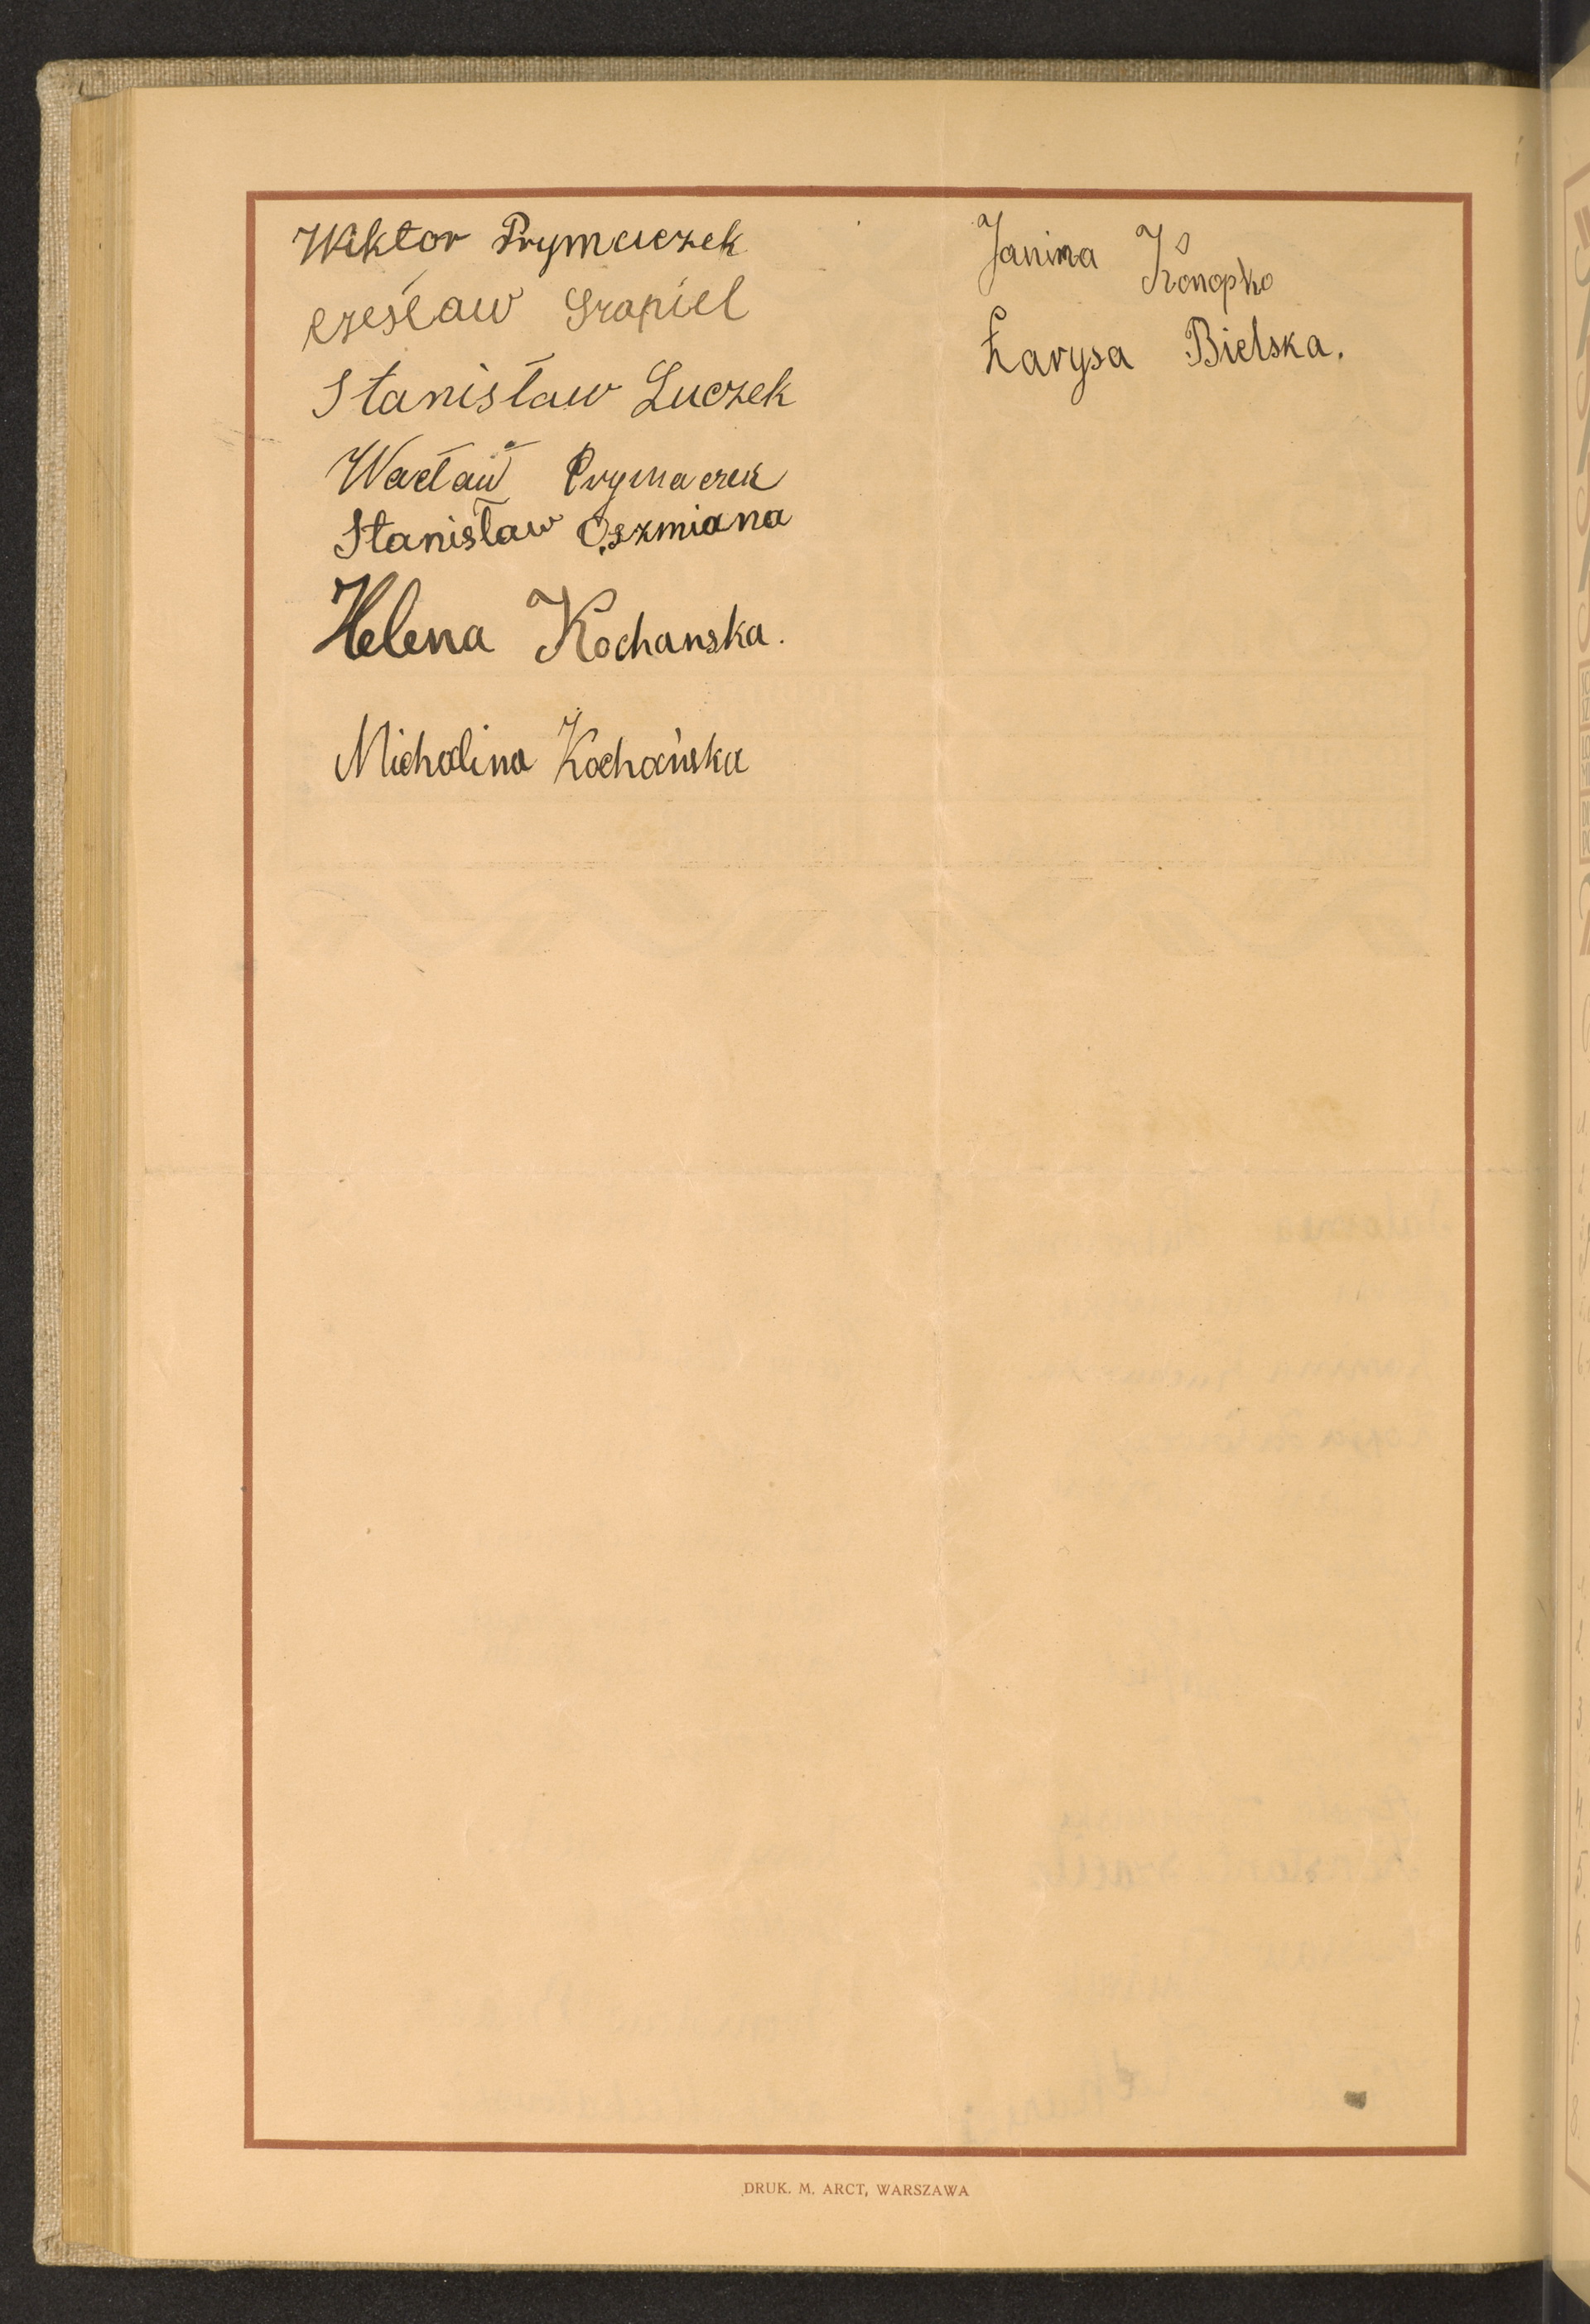 Wiktor Prymaczek
Czesław Szapiel
Stanisław Luczek
Wacław Prymaczek
Stanisław Oszmiana
Helena Kochanska.
Michalina Kochańska
Janina Konopko
Łarysa Bielska.
DRUK. M. ARCT, WARSZAWA